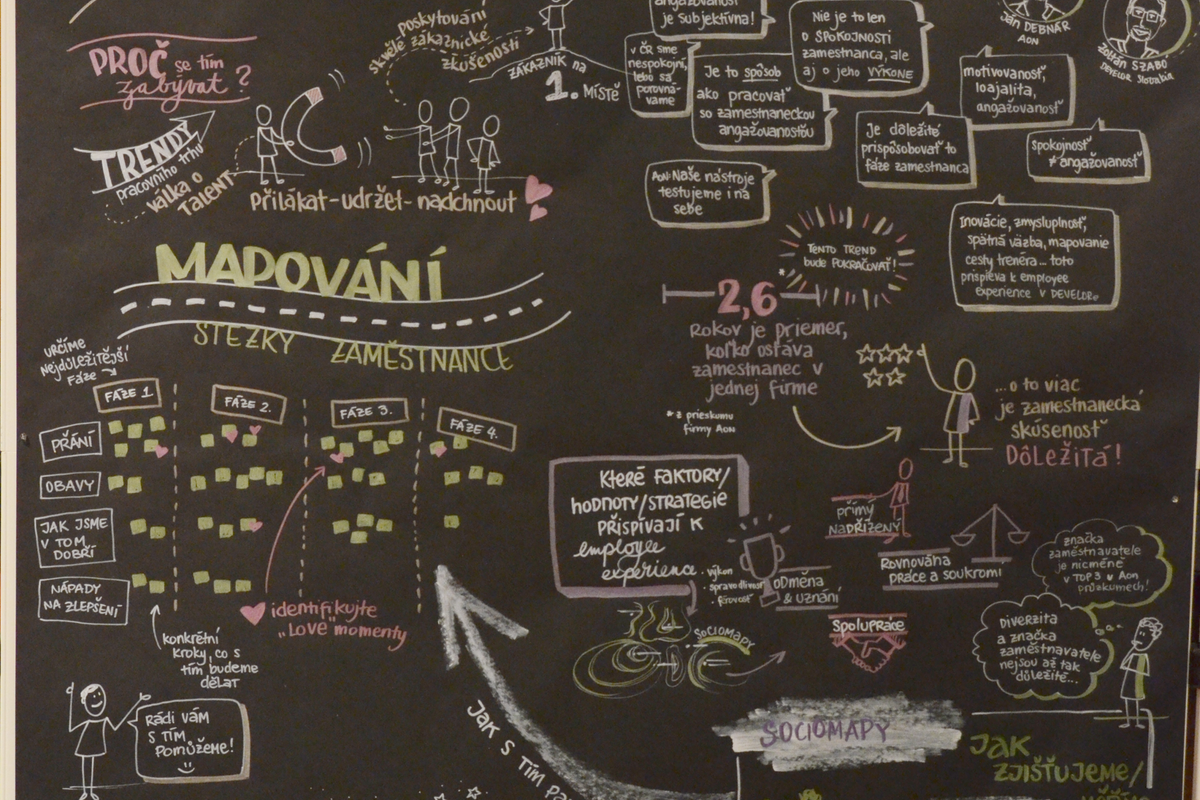 PROČ se tím
zabývat?
TRENDY
pracovního trhu
válka o
TALENT
přilákat-udržet-nadchnout
poskytování
skvělé zákaznické
zkušenosti
ZÁKAZNÍK na
1. MÍSTĚ
angažovanosť
je subjektívna!
v ČR sme
nespokojní,
lebo sa
porovná-
vame
Je to spôsob
ako pracovať
so zamestnaneckou
angažovanosťou
Nie je to len
o SPOKOJNOSTI
zamestnanca, ale
aj o jeho VÝKONE
Ján DEBNÁR
AON
Zoltán SZABÓ
DEVELOR Slovakia
motivovanosť,
loajalita,
angažovanosť
Je dôležité
prispôsobovať to
fáze zamestnanca
Spokojnosť
≠ angažovanosť
Aon: Naše nástroje
testujeme i na
sebe
TENTO TREND
bude POKRAČOVAŤ!
Inovácie, zmysluplnosť,
spätná väzba, mapovanie
cesty trenéra... toto
prispieva k employee
experience v DEVELOR
MAPOVÁNÍ
STEZKY ZAMĚSTNANCE
*
2,6
rokov je priemer,
koľko ostáva
zamestnanec v
jednej firme
* z prieskumu
firmy Aon
...o to viac
je zamestnanecká
skúsenosť
DÔLEŽITÁ!
URČÍME
nejdůležitější
fáze
FÁZE 1.
FÁZE 2.
FÁZE 3.
FÁZE 4.
PŘÁNÍ
OBAVY
JAK JSME
V TOM
DOBŘÍ
NÁPADY
NA ZLEPŠENÍ
identifikujte
"Love" momenty
konkrétní
kroky, co s
tím budeme
dělat
Rádi vám
s tím
pomůžeme!
KTERÉ FAKTORY/
HODNOTY/STRATEGIE
PŘISPÍVAJÍ K
employee
experience
přímý
NADŘÍZENÝ
Rovnováha
práce a soukromí
• výkon
• spravodlivosť
• férovosť
ODMĚNA
& UZNÁNÍ
Spolupráce
SOCIOMAPY
značka
zaměstnavatele
je nicméně
v TOP 3 v Aon
průzkumech!
DIVERZITA
a značka
zaměstnavatele
nejsou až tak
důležité...
SOCIOMAPY
JAK S TÍM
JAK
ZJIŠŤUJEME/